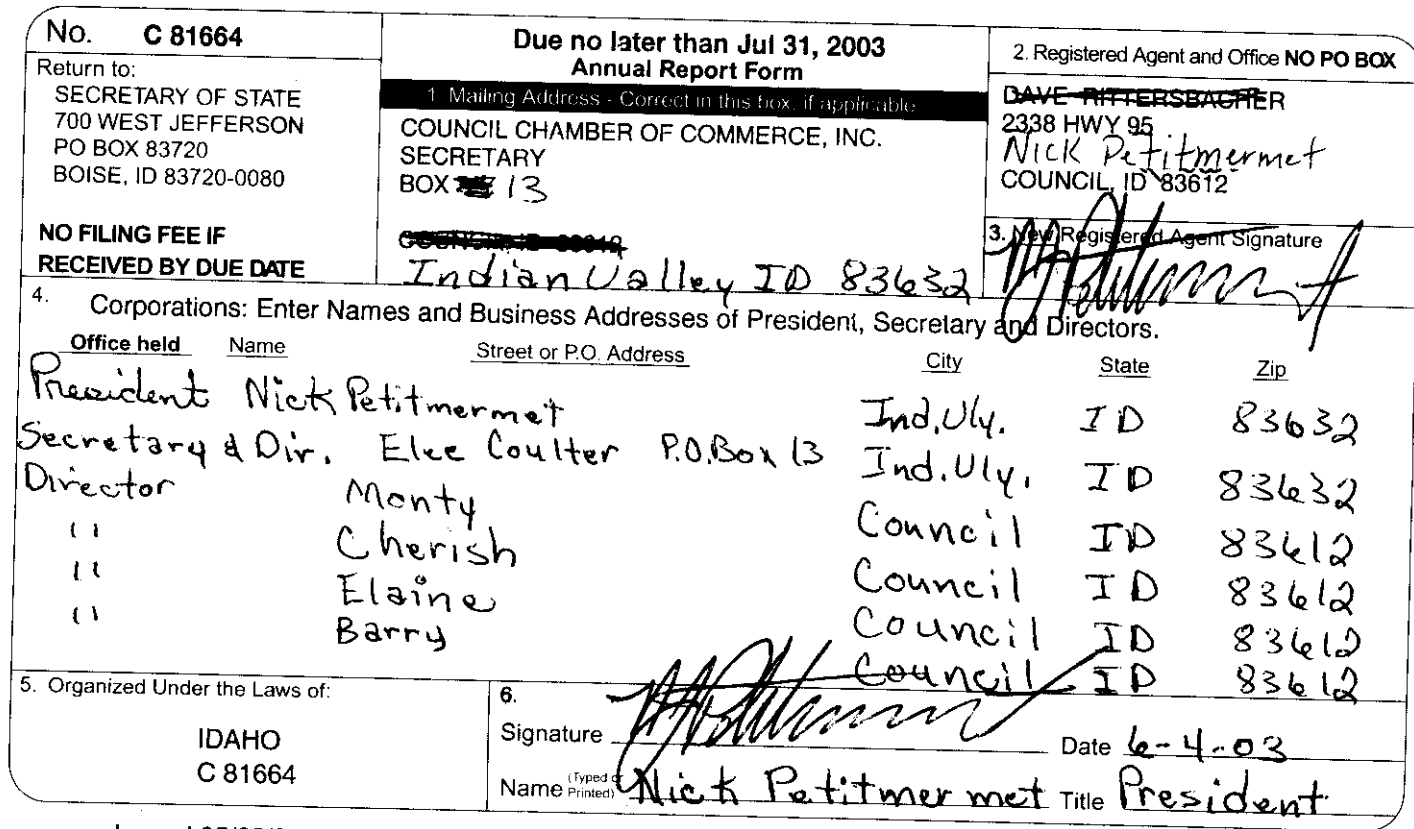 No. C 81664
Return to:
SECRETARY OF STATE
700 WEST JEFFERSON
PO BOX 83720
BOISE, ID 83720-0080
NO FILING FEE IF
RECEIVED BY DUE DATE
Due no later than Jul 31, 2003
Annual Report Form
1. Mailing Address - Correct in this box, if applicable
COUNCIL CHAMBER OF COMMERCE, INC.
SECRETARY
BOX 13
Indian Valley ID 83632
2. Registered Agent and Office NO PO BOX
DAVE RITTERSBACHER
2338 HWY 95
Nick Petitmermet
COUNCIL, ID 83612
3. New Registered Agent Signature
4. Corporations: Enter Names and Business Addresses of President, Secretary and Directors.
Office held Name Street or P.O. Address City State Zip
President Nick Petitmermet Ind. Vly. ID 83632
Secretary & Dir. Elee Coulter P.O. Box 13 Ind. Vly. ID 83632
Director Monty Council ID 83612
" Cherish Council ID 83612
" Elaine Council ID 83612
" Barry Council ID 83612
5. Organized Under the Laws of:
IDAHO
C 81664
6.
Signature Date 6-4-03
Name (Typed or Printed) Nick Petitmermet Title President